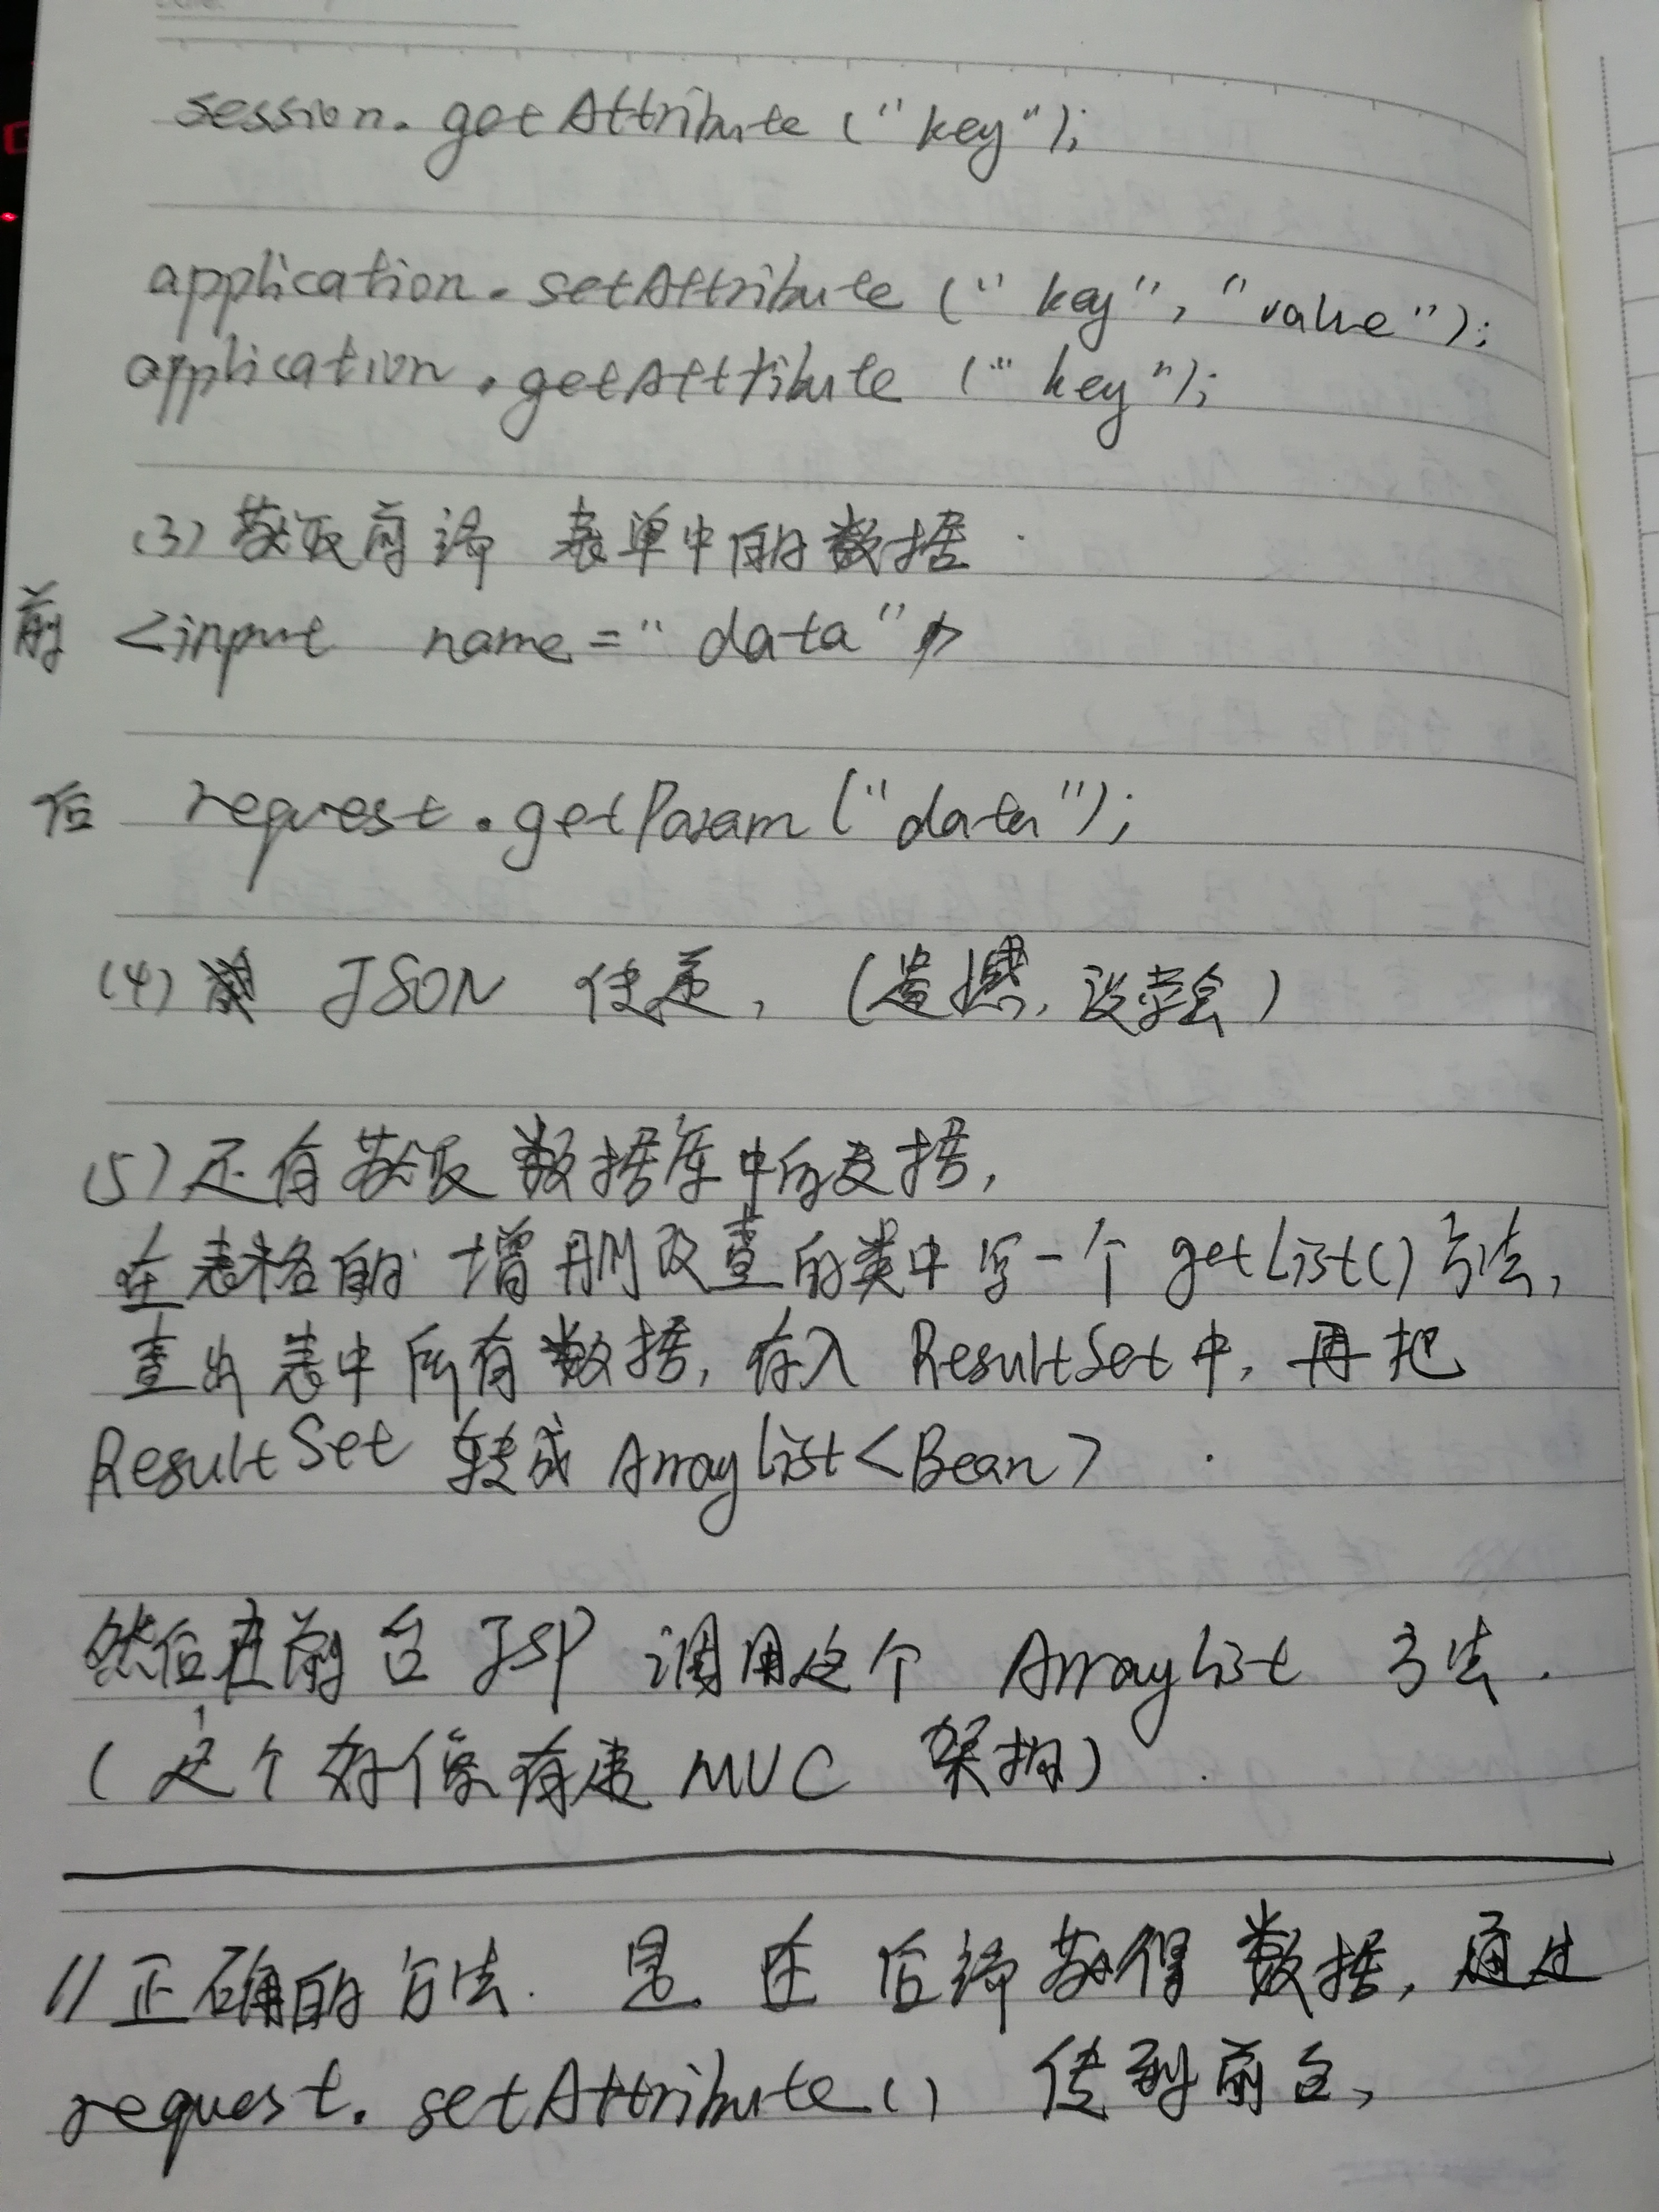 session.getAttribute("key");
application.setAttribute("key", "value");
application.getAttribute("key");
(3) 获取前端 表单中的数据.
前 <input name="data"/>
后 request.getParam("data");
(4) JSON 传递,(遗憾,没学会)
(5) 还有获取数据库中的数据,
在表格的 增删改查的类中写一个 getList()方法,
查出表中所有数据,存入 ResultSet中,再把
ResultSet 转成 ArrayList<Bean>.
然后在前台 JSP 调用这个 ArrayList 方法.
(这个好像有违 MVC 架构)
//正确的方法.是 在 后端获得 数据,通过
request.setAttribute() 传到前台,